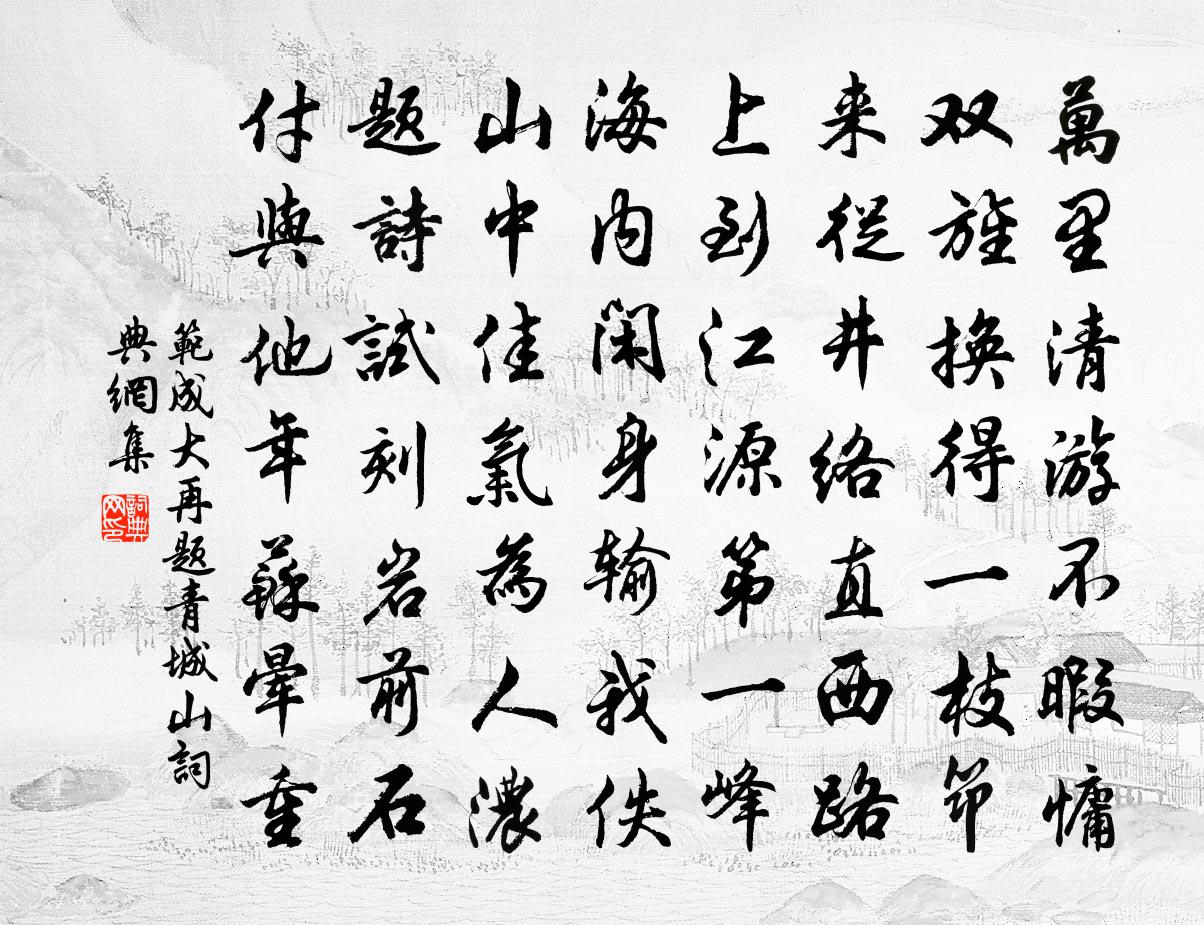 萬里清游不暇慵
双旌換得一枝筇
来從井絡直西路
上到江源第一峰
海内閑身輸我佚
山中佳氣為人濃
题詩試刻岩前石
付與他年蘚暈重
範成大再题青城山詞
典網集
詞典
网印